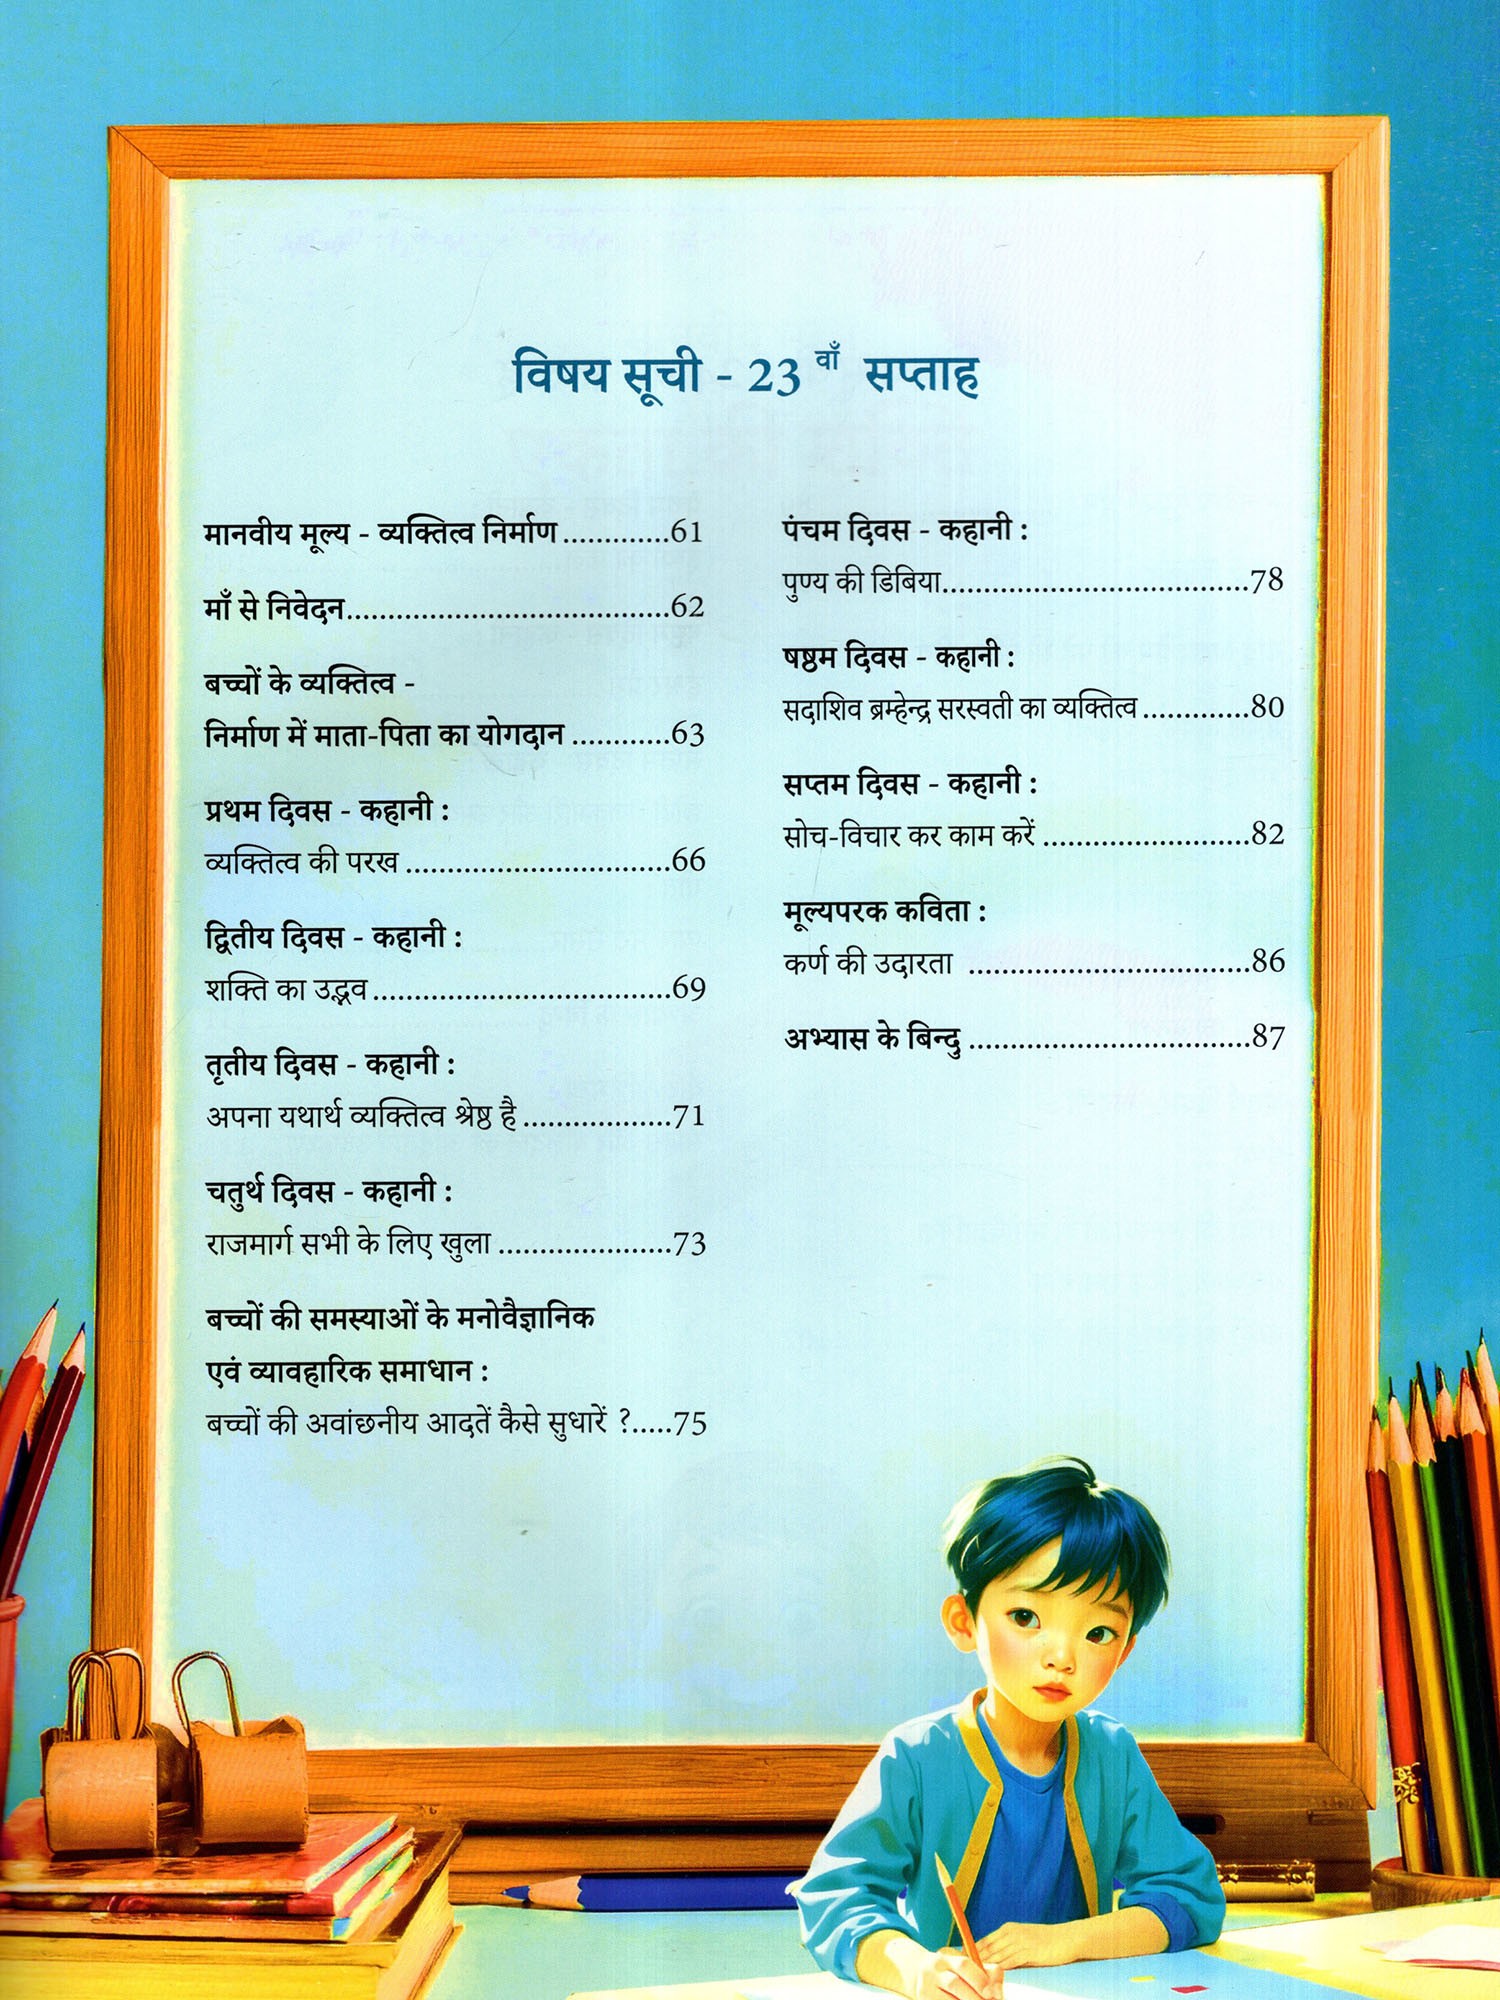 विषय सूची - 23 वाँ सप्ताह
मानवीय मूल्य - व्यक्तित्व निर्माण.............61
माँ से निवेदन.......................................62
बच्चों के व्यक्तित्व -
निर्माण में माता-पिता का योगदान ............63
प्रथम दिवस - कहानी :
व्यक्तित्व की परख ................................66
द्वितीय दिवस - कहानी :
शक्ति का उद्भव....................................69
तृतीय दिवस - कहानी :
अपना यथार्थ व्यक्तित्व श्रेष्ठ है..................71
चतुर्थ दिवस - कहानी :
राजमार्ग सभी के लिए खुला .....................73
बच्चों की समस्याओं के मनोवैज्ञानिक
एवं व्यावहारिक समाधान :
बच्चों की अवांछनीय आदतें कैसे सुधारें ?.....75
पंचम दिवस - कहानी :
पुण्य की डिबिया.....................................78
षष्ठम दिवस - कहानी :
सदाशिव ब्रम्हेन्द्र सरस्वती का व्यक्तित्व.............80
सप्तम दिवस - कहानी :
सोच-विचार कर काम करें .........................82
मूल्यपरक कविता :
कर्ण की उदारता ..................................86
अभ्यास के बिन्दु ..................................87